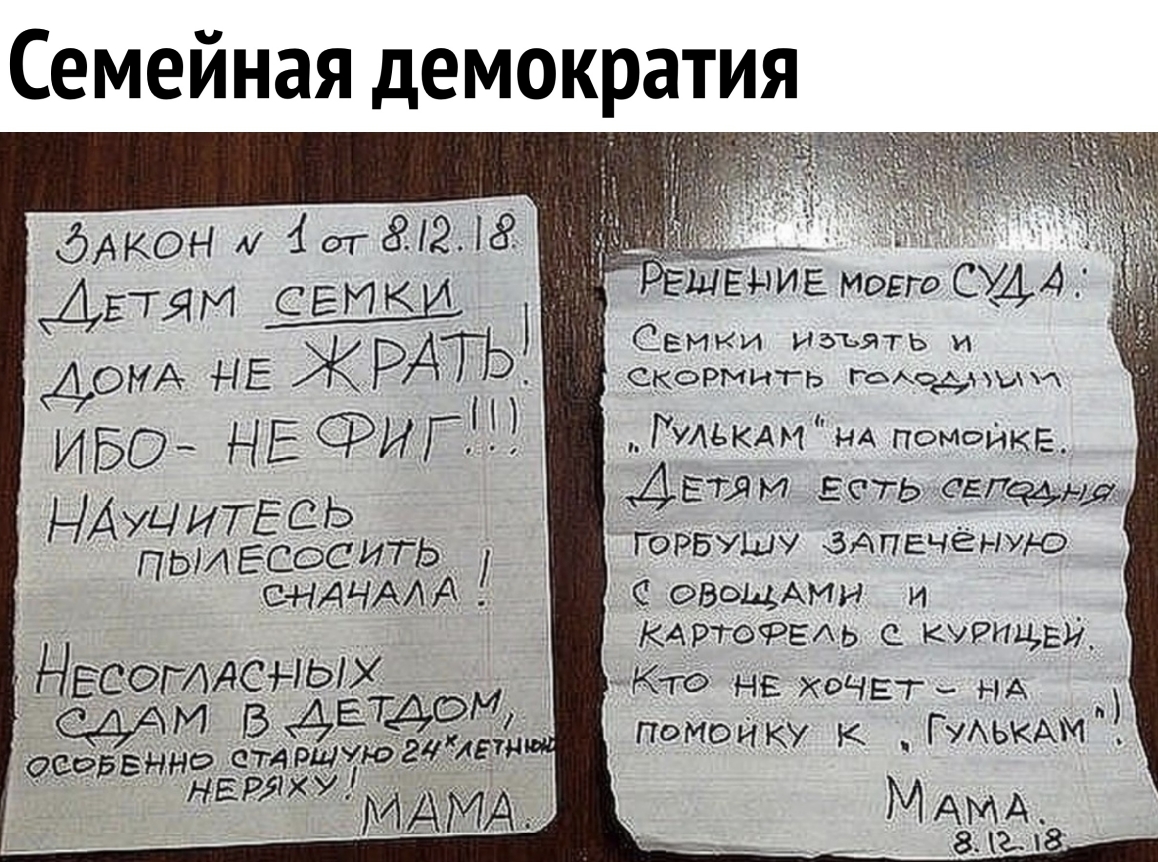 Семейная демократия
ЗАКОН N 1 от 8.12.18.
ДЕТЯМ СЕМКИ
ДОМА НЕ ЖРАТЬ!
ИБО - НЕ ФИГ!!!
НАУЧИТЕСЬ
ПЫЛЕСОСИТЬ
СНАЧАЛА!
НЕСОГЛАСНЫХ
СДАМ В ДЕТДОМ,
ОСОБЕННО СТАРШУЮ 24х ЛЕТНЮЮ
НЕРЯХУ!
МАМА.
РЕШЕНИЕ МОЕГО СУДА:
СЕМКИ ИЗЪЯТЬ И
СКОРМИТЬ ГОЛОДНЫМ
„ГУЛЬКАМ" НА ПОМОЙКЕ.
ДЕТЯМ ЕСТЬ СЕГОДНЯ
ГОРБУШУ ЗАПЕЧЁНУЮ
С ОВОЩАМИ И
КАРТОФЕЛЬ С КУРИЦЕЙ.
КТО НЕ ХОЧЕТ - НА
ПОМОЙКУ К „ГУЛЬКАМ"!
МАМА.
8.12.18